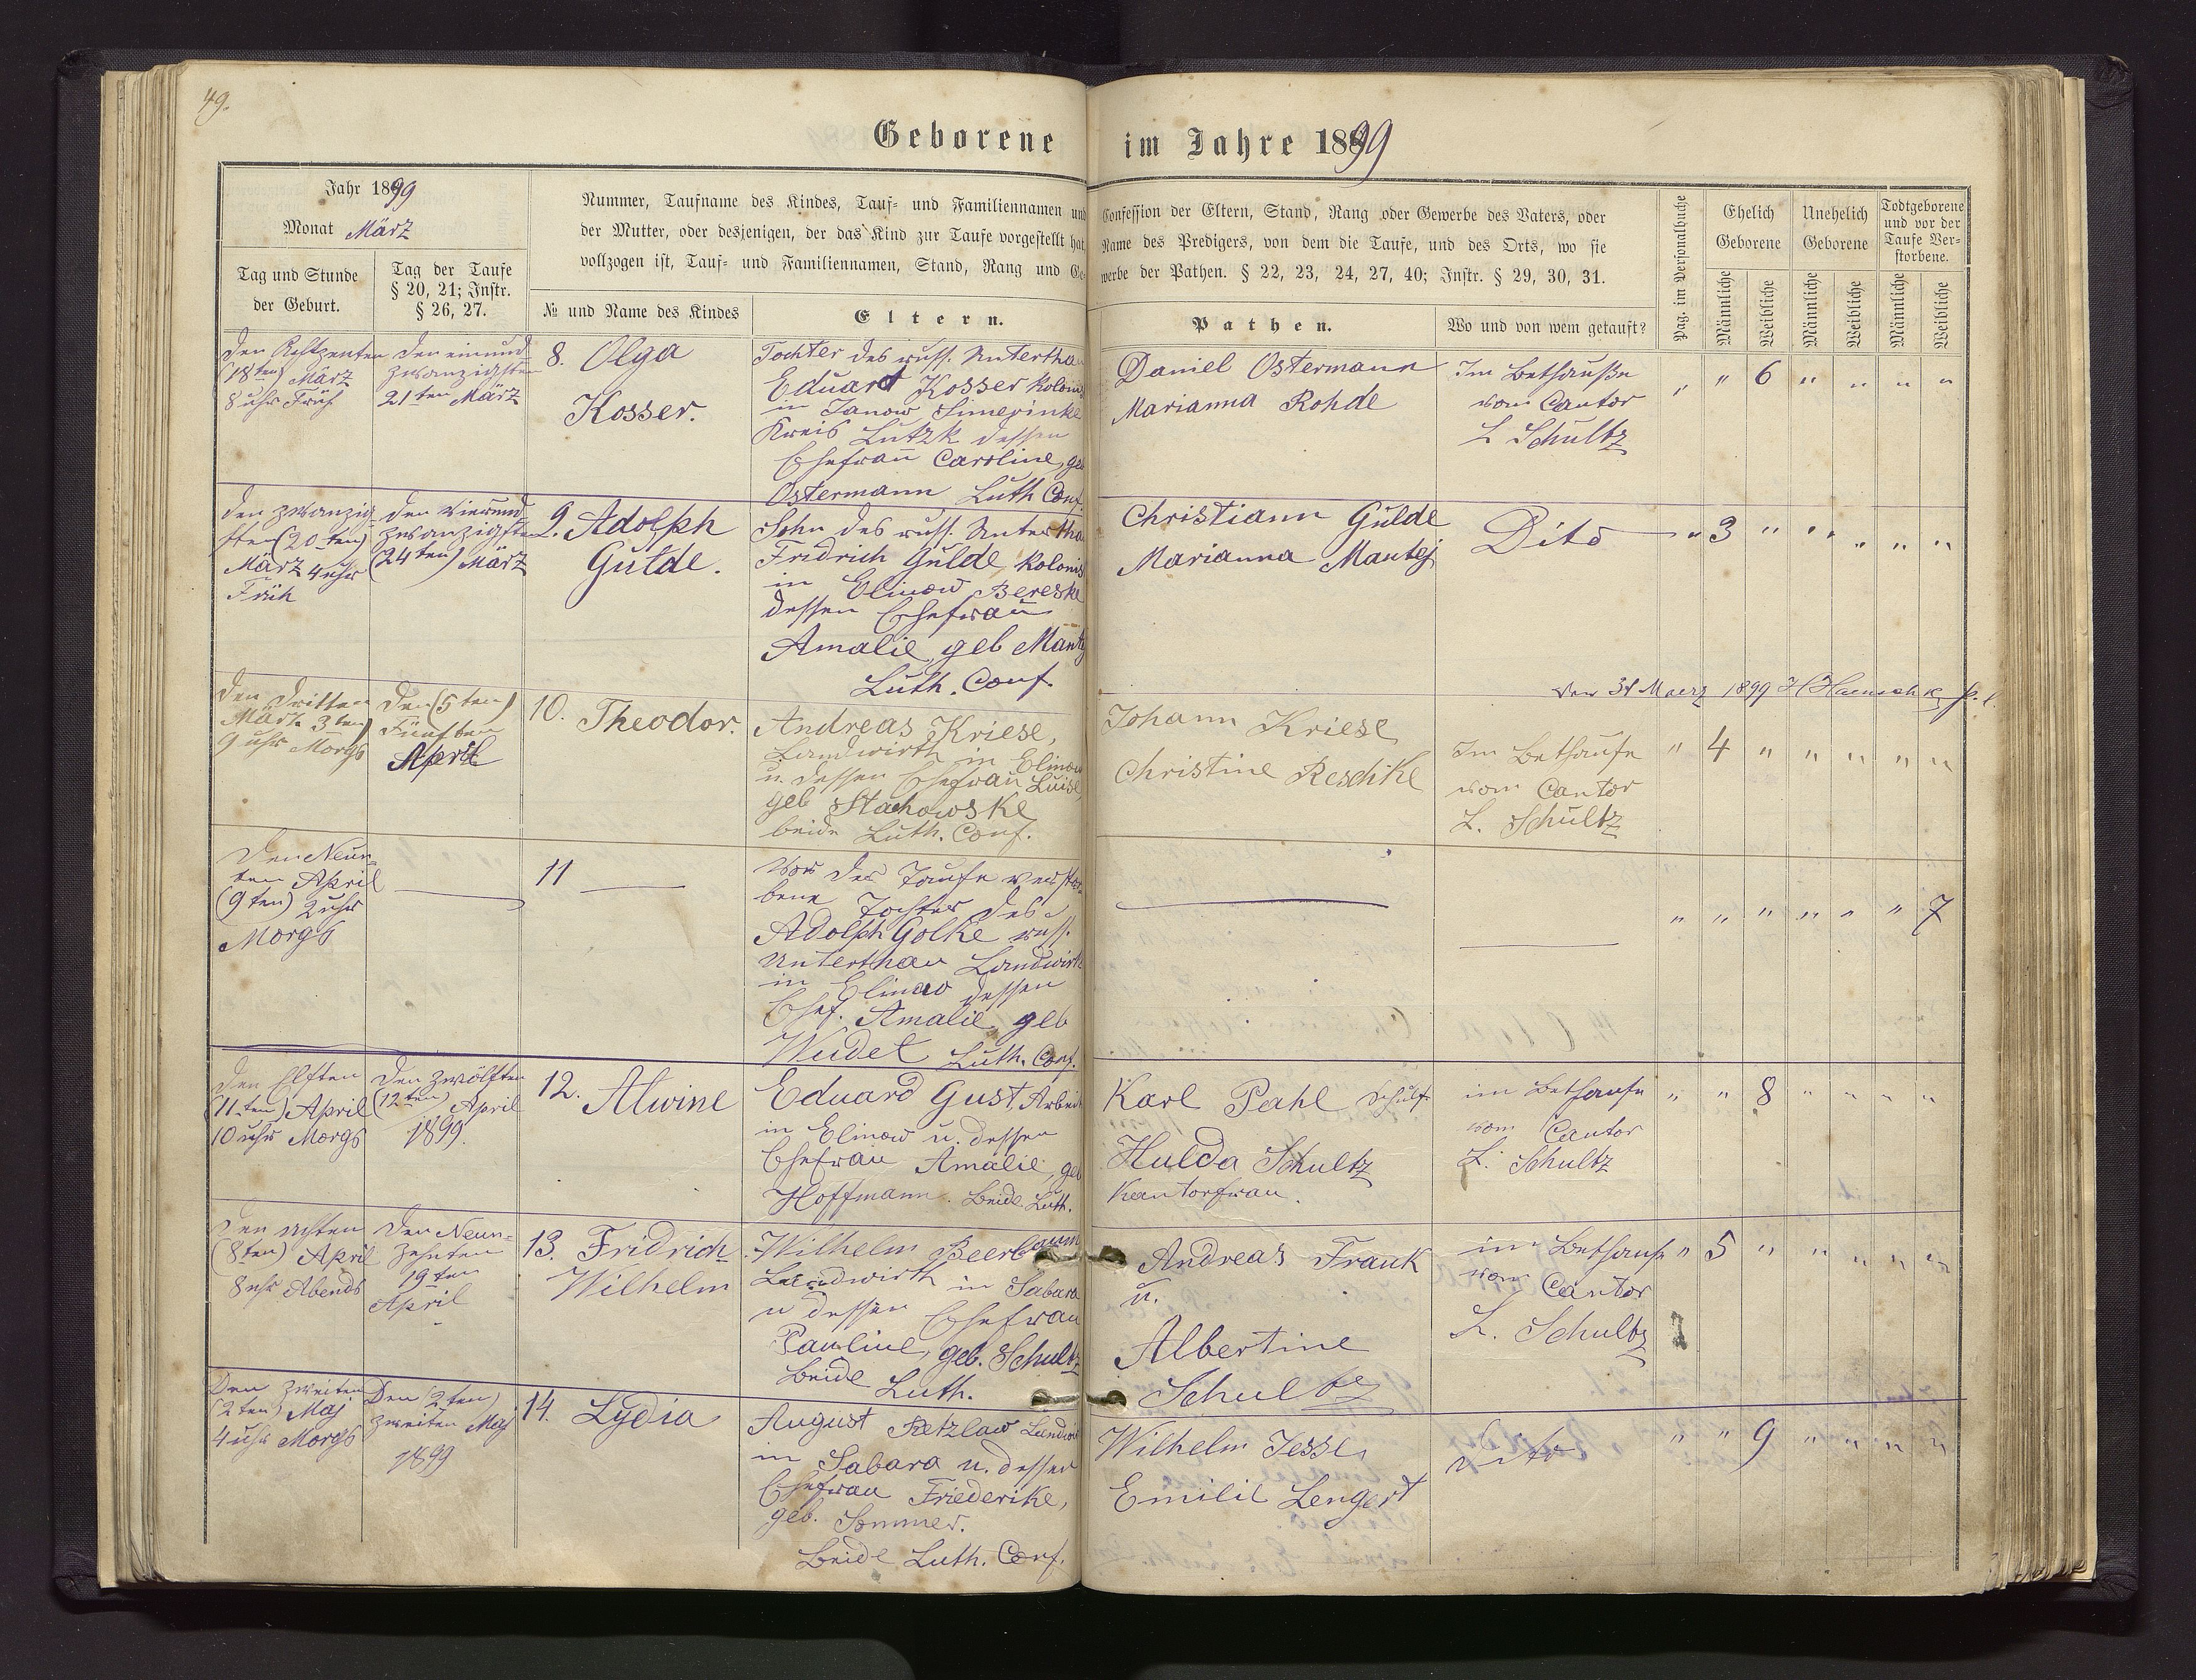 49.
Geborene im Jahre 1899
Jahr 1899
Monat März
Tag und Stunde
der Geburt.
Tag der Taufe
§ 20, 21; Instr.
§ 26, 27.
Nummer, Taufname des Kindes, Tauf- und Familiennamen und
der Mutter, oder desjenigen, der das Kind zur Taufe vorgestellt hat,
vollzogen ist, Tauf- und Familiennamen, Stand, Rang und Ge-
№ und Name des Kindes
Eltern.
Confession der Eltern, Stand, Rang oder Gewerbe des Vaters, oder
Name des Predigers, von dem die Taufe, und des Orts, wo sie
werbe der Pathen. § 22, 23, 24, 27, 40; Instr. § 29, 30, 31.
Pathen.
Wo und von wem getauft?
Pag. im Personalbuche
Ehelich
Geborene
Unehelich
Geborene
Todtgeborene
und vor der
Taufe Ver-
storbene.
Männliche
Weibliche
Männliche
Weibliche
Männliche
Weibliche
Den Achtzenten
(18ten) März
8 uhr Früh
den einund
zwanzigsten
21ten März
8. Olga
Kosser.
Tochter des russ. Untertha
Eduard Kosser Kolonis
in Janow Simerinke
Kreis Lutzk dessen
Ehefrau Caroline, geb
Ostermann Luth Conf.
Daniel Ostermann
Marianna Rohde
Im Bethause
vom Cantor
L Schultz
" " 6 " " " "
den zwanzig-
sten (20ten)
März 4 uhr
Früh
den vierund
zwanzigsten
(24ten) März
9. Adolph
Gülde.
Sohn des russ. Untertha
Fridrich Gülde Kolonis
in Elinow Bereske
dessen Ehefrau
Amalie, geb Mantej
Luth. Conf.
Christiann Gülde
Marianna Mantej
Dito
" 3 " " " " "
den 31 Maerz 1899
den dritten
März 3ten)
9 uhr Morgs
Den (5ten)
Fünften
April
10. Theodor.
Andreas Kriese,
Landwirth in Elinow
u. dessen Ehefrau Luise,
geb Stachowske
beide Luth. Conf.
Johann Kriese
Christine Reschke
Im Bethause
vom Cantor
L. Schultz
" 4 " " " " "
Den Neun-
ten April
(9ten) 2 uhr
Morgs
11
Vor der Taufe verstor-
bene Tochter des
Adolph Golke russ.
Unterthan Landwirth
in Elinow dessen
Ehef. Amalie, geb
Wudel Luth. Conf.
" " " " " " 7
Den Elften
(11ten) April
10 uhr Morgs
Den zwölften
(12ten) April
1899.
12. Alwine
Eduard Gust, Arbeit
in Elinow u. dessen
Ehefrau Amalie, geb
Hoffmann. Beide Luth.
Karl Pahl
Hulda Schultz
Kantorfrau.
im Bethause
vom Cantor
L. Schultz
" " 8 " " " "
Den achten
(8ten) April
8 uhr Abends
Den Neun-
zehnten
19ten
April
13. Fridrich
Wilhelm
Wilhelm Beerbaum
Landwirth in Sabara
u dessen Ehefrau
Pauline, geb. Schultz
Beide Luth.
Andreas Frank
u.
Albertine
Schultz
im Bethause
vom Cantor
L. Schultz
" 5 " " " " "
Den zweiten
(2ten) Maj
4 uhr Morgs
Den (2ten)
zweiten Maj
1899
14. Lydia
August Retzlaw Landwir
in Sabara u. dessen
Ehefrau Friederike,
geb. Sommer.
Beide Luth. Conf.
Wilhelm Jesse,
Emilie Lengert
dito
" " 9 " " " "